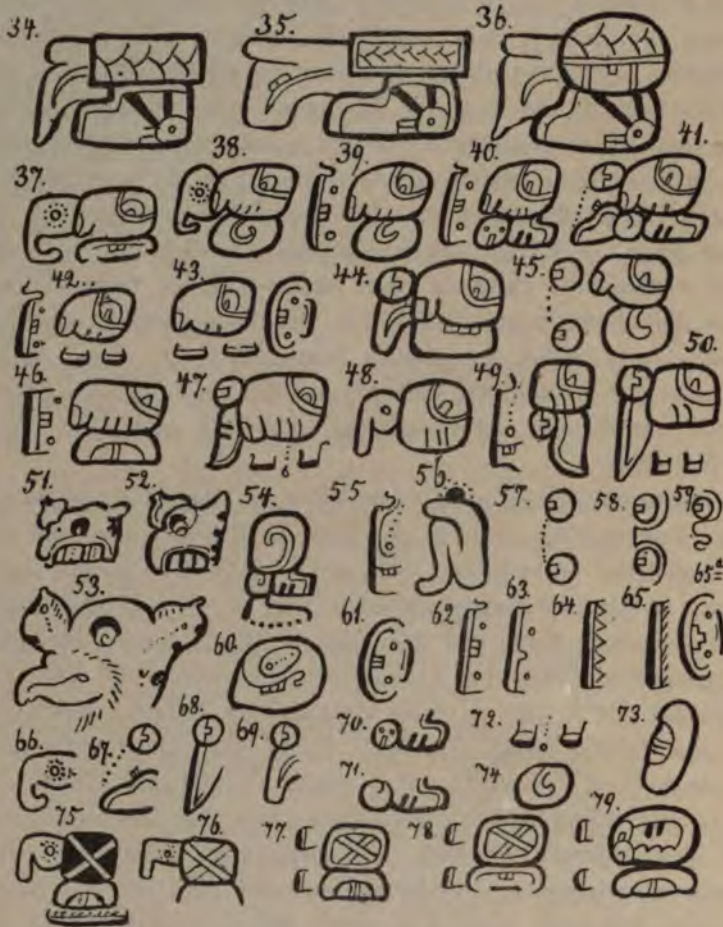 34. 35. 36.
37. 38. 39. 40. 41.
42. 43. 44. 45.
46. 47. 48. 49. 50.
51. 52. 54. 55 56. 57. 58. 59.
53. 60. 61. 62 63. 64. 65. 65a
66. 67. 68. 69. 70. 72. 73.
71. 74.
75 76. 77. 78. 79.